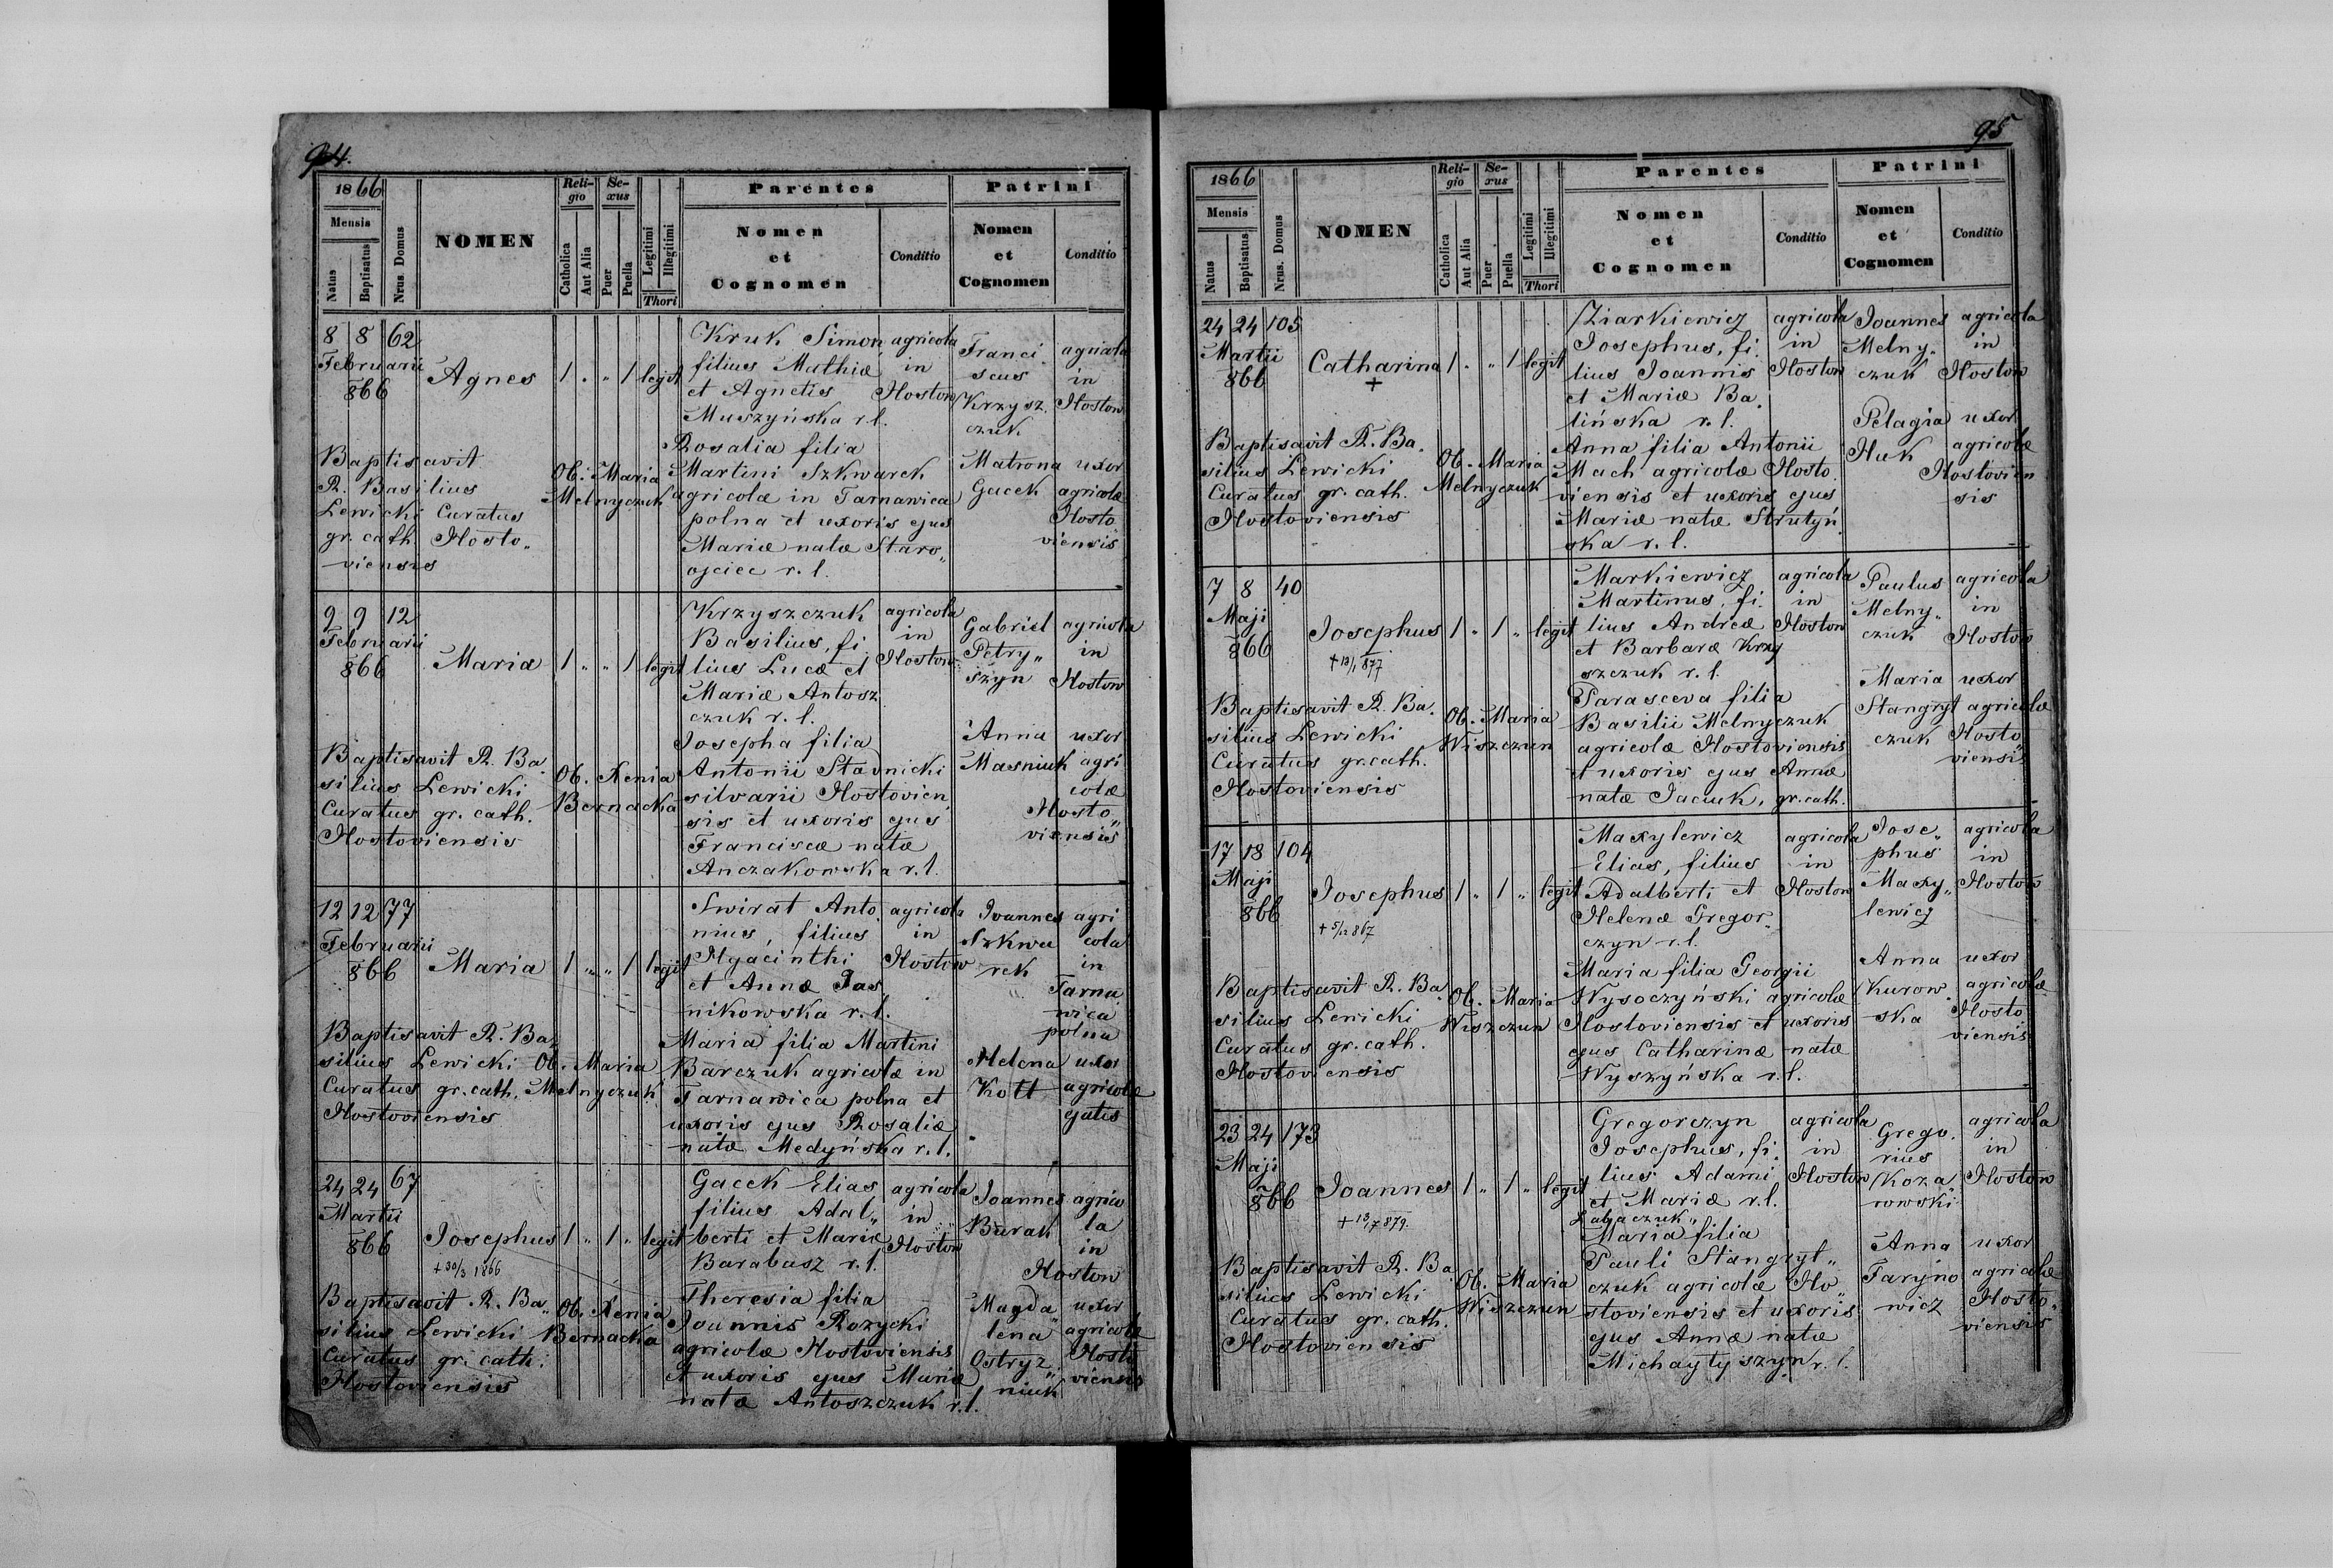 94.
1866
Mensis
Natus
Baptisatus
Nrus. Domus
NOMEN
Reli-
gio
Catholica
Aut Alia
Se-
xus
Puer
Puella
Legitimi
Illegitimi
Thori
Parentes
Nomen
et
Cognomen
Conditio
Patrini
Nomen
et
Cognomen
Conditio
8 8 62
Februarii
866
Agnes 1 . " 1 legit
Kruk Simon,
filius Mathiæ
et Agnetis
Muszyńska r. l.
Rosalia filia
Martini Szkwarek
agricolæ in Tarnawica
polna et uxoris ejus
Mariæ natæ Staro„
ojciec r. l.
agricola
in
Hostow
Franci„
scus
Krzysz„
czuk
agricola
in
Hostow
Matrona
Gacek
uxor
agricolæ
Hosto„
viensis
Baptisavit
R. Basilius
Lewicki Curatus
gr. cath. Hosto„
viensis
Ob. Maria
Melnyczuk
9 9 12
Februarii
866
Maria 1 " " 1 legit
Krzyszczuk
Basilius, fi„
lius Lucæ et
Mariæ Antosz
czuk r. l.
Josepha filia
Antonii Stavnicki
silvarii Hostovien„
sis et uxoris ejus
Franciscæ natæ
Anczakowska r. l.
agricola
in
Hostow
Gabriel
Petry„
szyn
agricola
in
Hostow
Anna
Masniuk
uxor
agri
colæ
Hosto„
viensis
Baptisavit R. Ba„
silius Lewicki
Curatus gr. cath.
Hostoviensis
Ob. Xenia
Bernacka
12 12 77
Februarii
866
Maria 1 " " 1 legit
Swirat Anto„
nius, filius
Hyacinthi
et Annæ Jas„
nikowska r. l.
Maria filia Martini
Barczuk agricolæ in
Tarnawica polna et
uxoris ejus Rosaliæ
natæ Medyńska r. l.
agricola
in
Hostow
Joannes
Szkwa
rek
agri
cola
in
Tarna
wica
polna
Helena
Kott
uxor
agricolæ
ejatis
Baptisavit R. Ba„
silius Lewicki
Curatus gr. cath.
Hostoviensis
Ob. Maria
Melnyczuk
24 24 67
Martii
866
Josephus 1 " 1 " legit
+ 30/3 1866
Gacek Elias
filius Adal„
berti et Mariæ
Barabasz r. l.
Theresia filia
Joannis Rozycki
agricolæ Hostoviensis
et uxoris ejus Mariæ
natæ Antoszczuk r. l.
agricola
in
Hostow
Joannes
Burak
agrico
la
in
Hostow
Magda„
lena
Ostryz„
niuk
uxor
agricolæ
Hosto
viensis
Baptisavit R. Ba„
silius Lewicki
Curatus gr. cath.
Hostoviensis
Ob. Xenia
Bernacka
95
1866
Mensis
Natus
Baptisatus
Nrus. Domus
NOMEN
Reli-
gio
Catholica
Aut Alia
Se-
xus
Puer
Puella
Legitimi
Illegitimi
Thori
Parentes
Nomen
et
Cognomen
Conditio
Patrini
Nomen
et
Cognomen
Conditio
24 24 105
Martii
866
Catharina 1 . " 1 legit
+
Ziarkiewicz
Josephus, fi„
lius Joannis
et Mariæ Ba„
lińska r. l.
Anna filia Antonii
Mach agricolæ Hosto„
viensis et uxoris ejus
Mariæ natæ Strutyń„
ska r. l.
agricola
in
Hostow
Joannes
Melny„
czuk
agricola
in
Hostow
Pelagia
Huk
uxor
agricolæ
Hostovien
sis
Baptisavit R. Ba„
silius Lewicki
Curatus gr. cath.
Hostoviensis
Ob. Maria
Melnyczuk
7 8 40
Maji
866
Josephus 1 " 1 " legit
+ 13/1 877
Markiewicz
Martinus, fi„
lius Andreæ
et Barbaræ Krzy
szczuk r. l.
Parasceva filia
Basilii Melnyczuk
agricolæ Hostoviensis
et uxoris ejus Annæ
natæ Jaciuk, gr. cath.
agricola
in
Hostow
Paulus
Melny„
czuk
agricola
in
Hostow
Maria
Stangryt
czuk
uxor
agricolæ
Hosto„
viensis
Baptisavit R. Ba„
silius Lewicki
Curatus gr. cath.
Hostoviensis
Ob. Maria
Wiszczun
17 18 104
Maji
866
Josephus 1 " 1 " legit
+ 5/12 867
Maxylewicz
Elias, filius
Adalberti et
Helenæ Gregor„
czyn r. l.
Maria filia Georgii
Wysoczyński agricolæ
Hostoviensis et uxoris
ejus Catharinæ natæ
Wyszyńska r. l.
agricola
in
Hostow
Jose„
phus
Maxy„
lewicz
agricola
in
Hostow
Anna
Kurow„
ska
uxor
agricolæ
Hosto
viensis
Baptisavit R. Ba„
silius Lewicki
Curatus gr. cath.
Hostoviensis
Ob. Maria
Wiszczun
23 24 173
Maji
866
Joannes 1 " 1 " legit
+ 13/7 879.
Gregorczyn
Josephus, fi„
lius Adami
et Mariæ r. l.
Labaczuk„
Maria filia
Pauli Stangryt„
czuk agricolæ Ho„
stoviensis et uxoris
ejus Annæ natæ
Michayłyszyn r. l.
agricola
in
Hostow
Grego„
rius
Koza„
rowski
agricola
in
Hostow
Anna
Taryno
wicz
uxor
agricolæ
Hosto„
viensis
Baptisavit R. Ba„
silius Lewicki
Curatus gr. cath.
Hostoviensis
Ob. Maria
Wiszczun